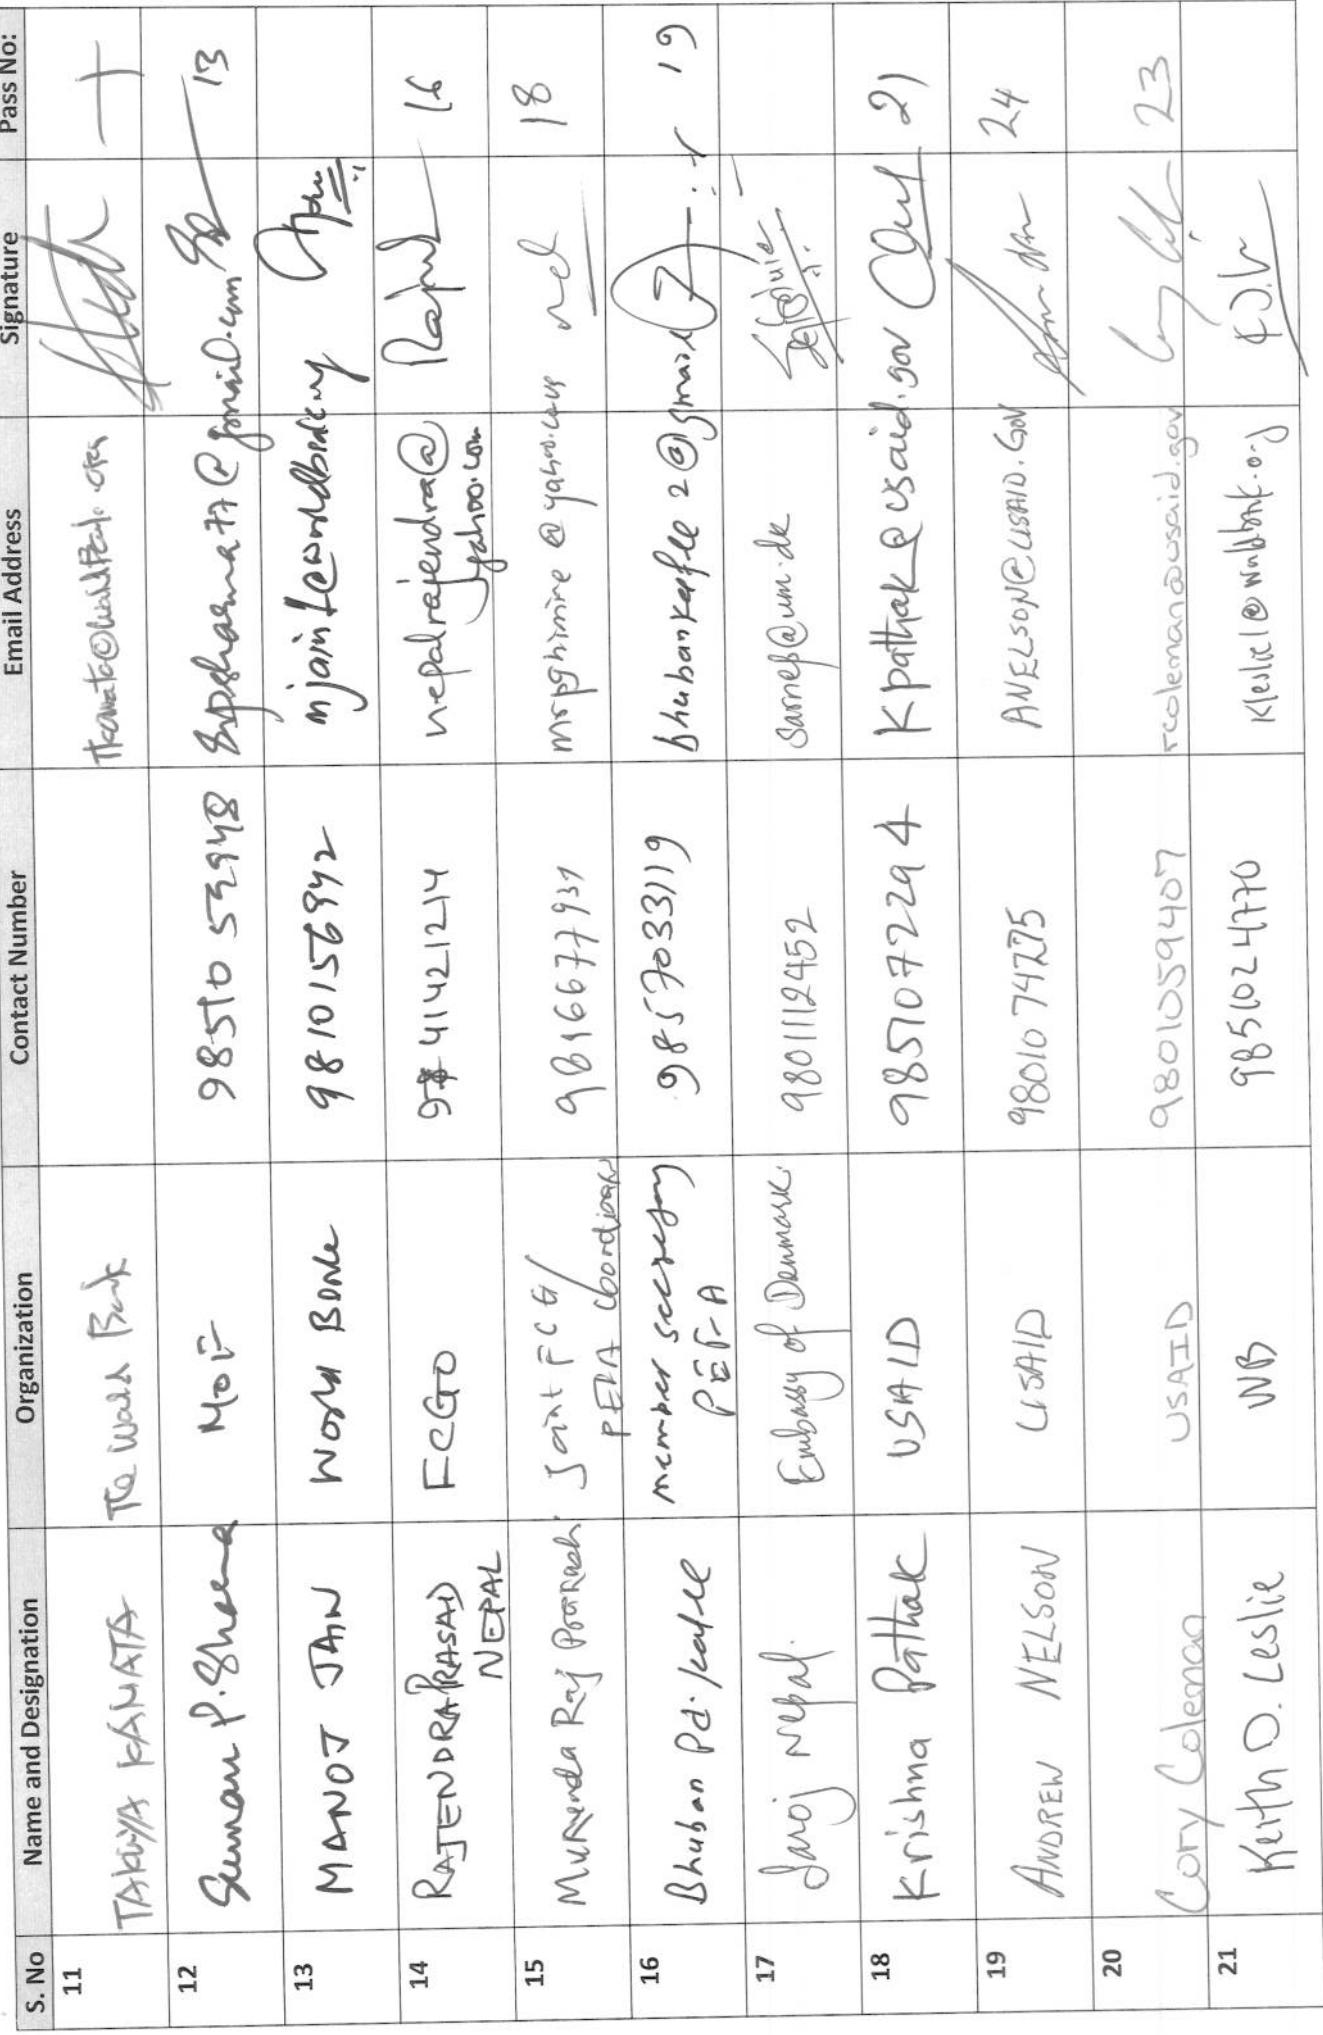 S. No Name and Designation Organization Contact Number Email Address Signature Pass No:
11 TAKUYA KAMATA The World Bank
12 Suman P. Sharma MOF 98510 52948 spsharma77@gmail.com 13
13 MANOJ JAIN World Bank 9810156942
14 RAJENDRA PRASAD FCGO 9841421214 nepalrajendra@ 16
NEPAL yahoo.com
15 Mukunda Raj Prakash Joint FCG/ mrpghimire@yahoo.com 18
PEFA Coordinator
16 Bhuban Pd. Kafle member secretary 9857033119 bhubankafle2@gmail 19
PEFA
17 Saroj Nepal. Embassy of Denmark. 9801112452 sarnep@um.dk
18 Krishna Pathak USAID 9851072294 Kpathak@usaid.gov 21
19 ANDREW NELSON USAID 9801074275 ANELSON@USAID.GOV 24
20 Cory Coleman USAID 9801059407 rcoleman@usaid.gov 23
21 Keith D. Leslie WB 9851024770 Kleslie1@worldbank.org